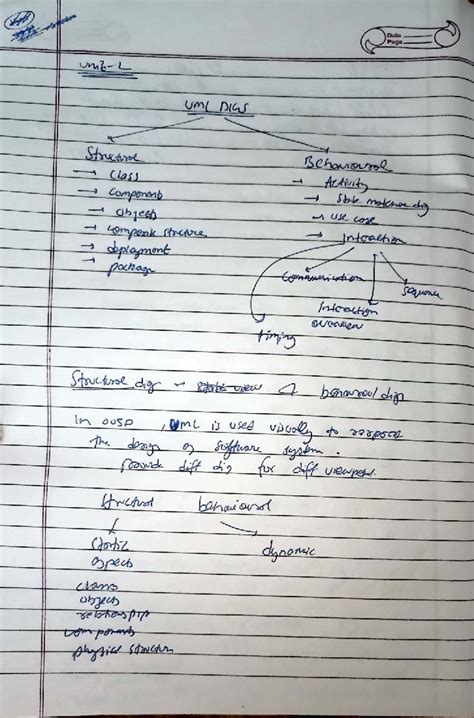 Date
Page
Unit-2
UML DIGS
Structural
Behavioural
→ class
→ Activity
→ components
→ State machine dig
→ objects
→ use case
→ composite structure
→ Interaction
→ deployment
→ package
Communication
Sequence
Interaction
overview
timing
Structural dig - state view & behavioural digs
In OOSD, UML is used visually to
the design of software system.
provide diff dig for diff viewpoint.
Structural behavioural
Static
aspects
dynamic
class
objects
relationship
components
physical structure